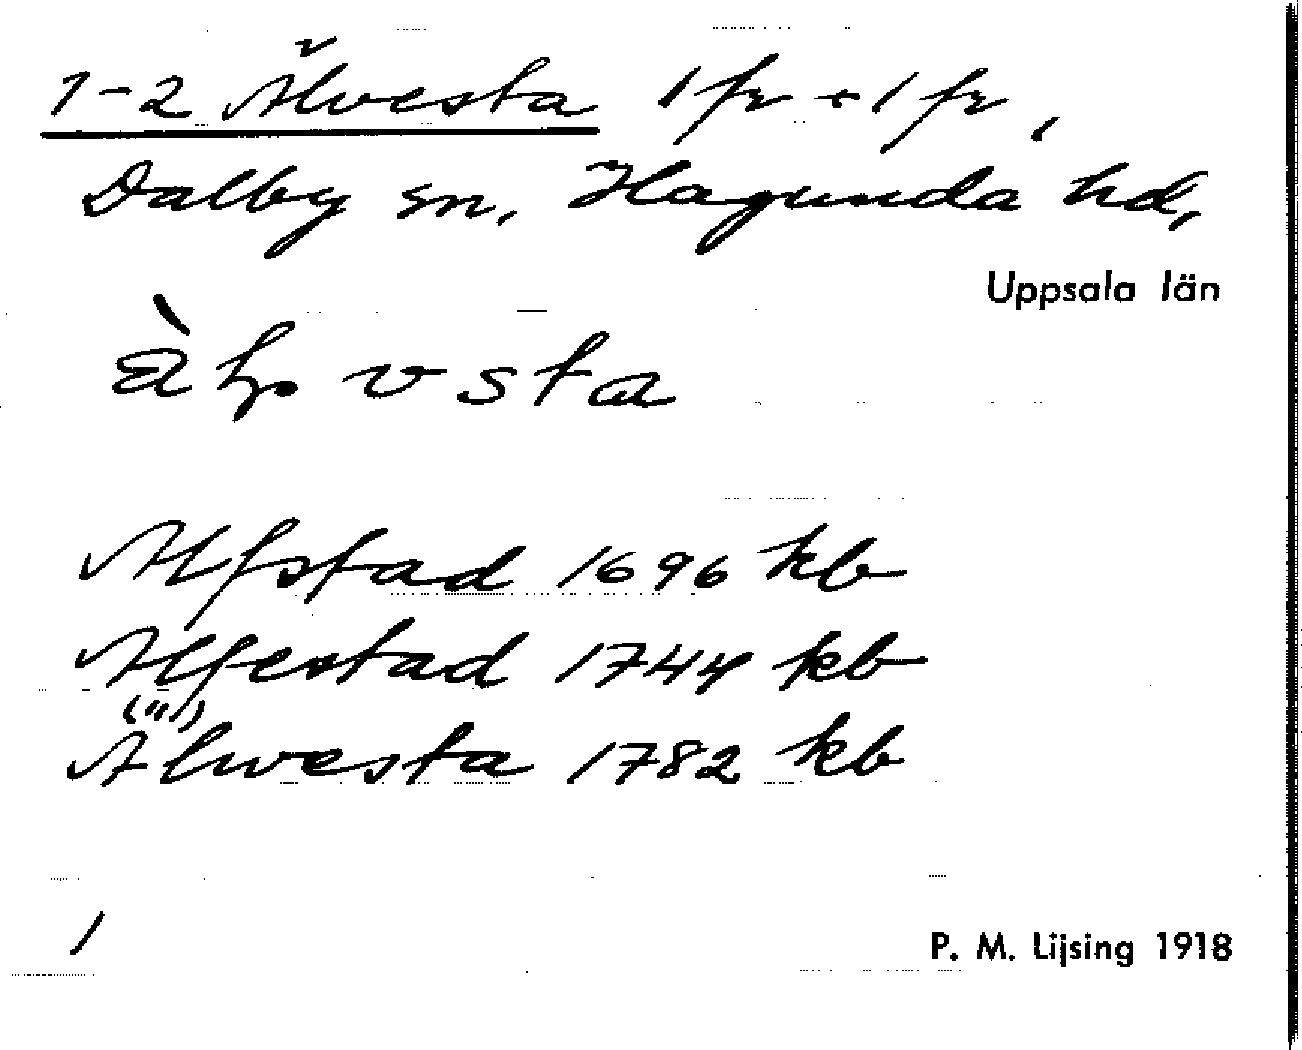 1-2 Älvesta 1 fr + 1 fr,
Dalby sn, Hagunda hd,
Uppsala län
vsta
Alfstad 1696 kb
Alfestad 1744 kb
(äl)
Alwesta 1782 kb
1
P. M. Lijsing 1918